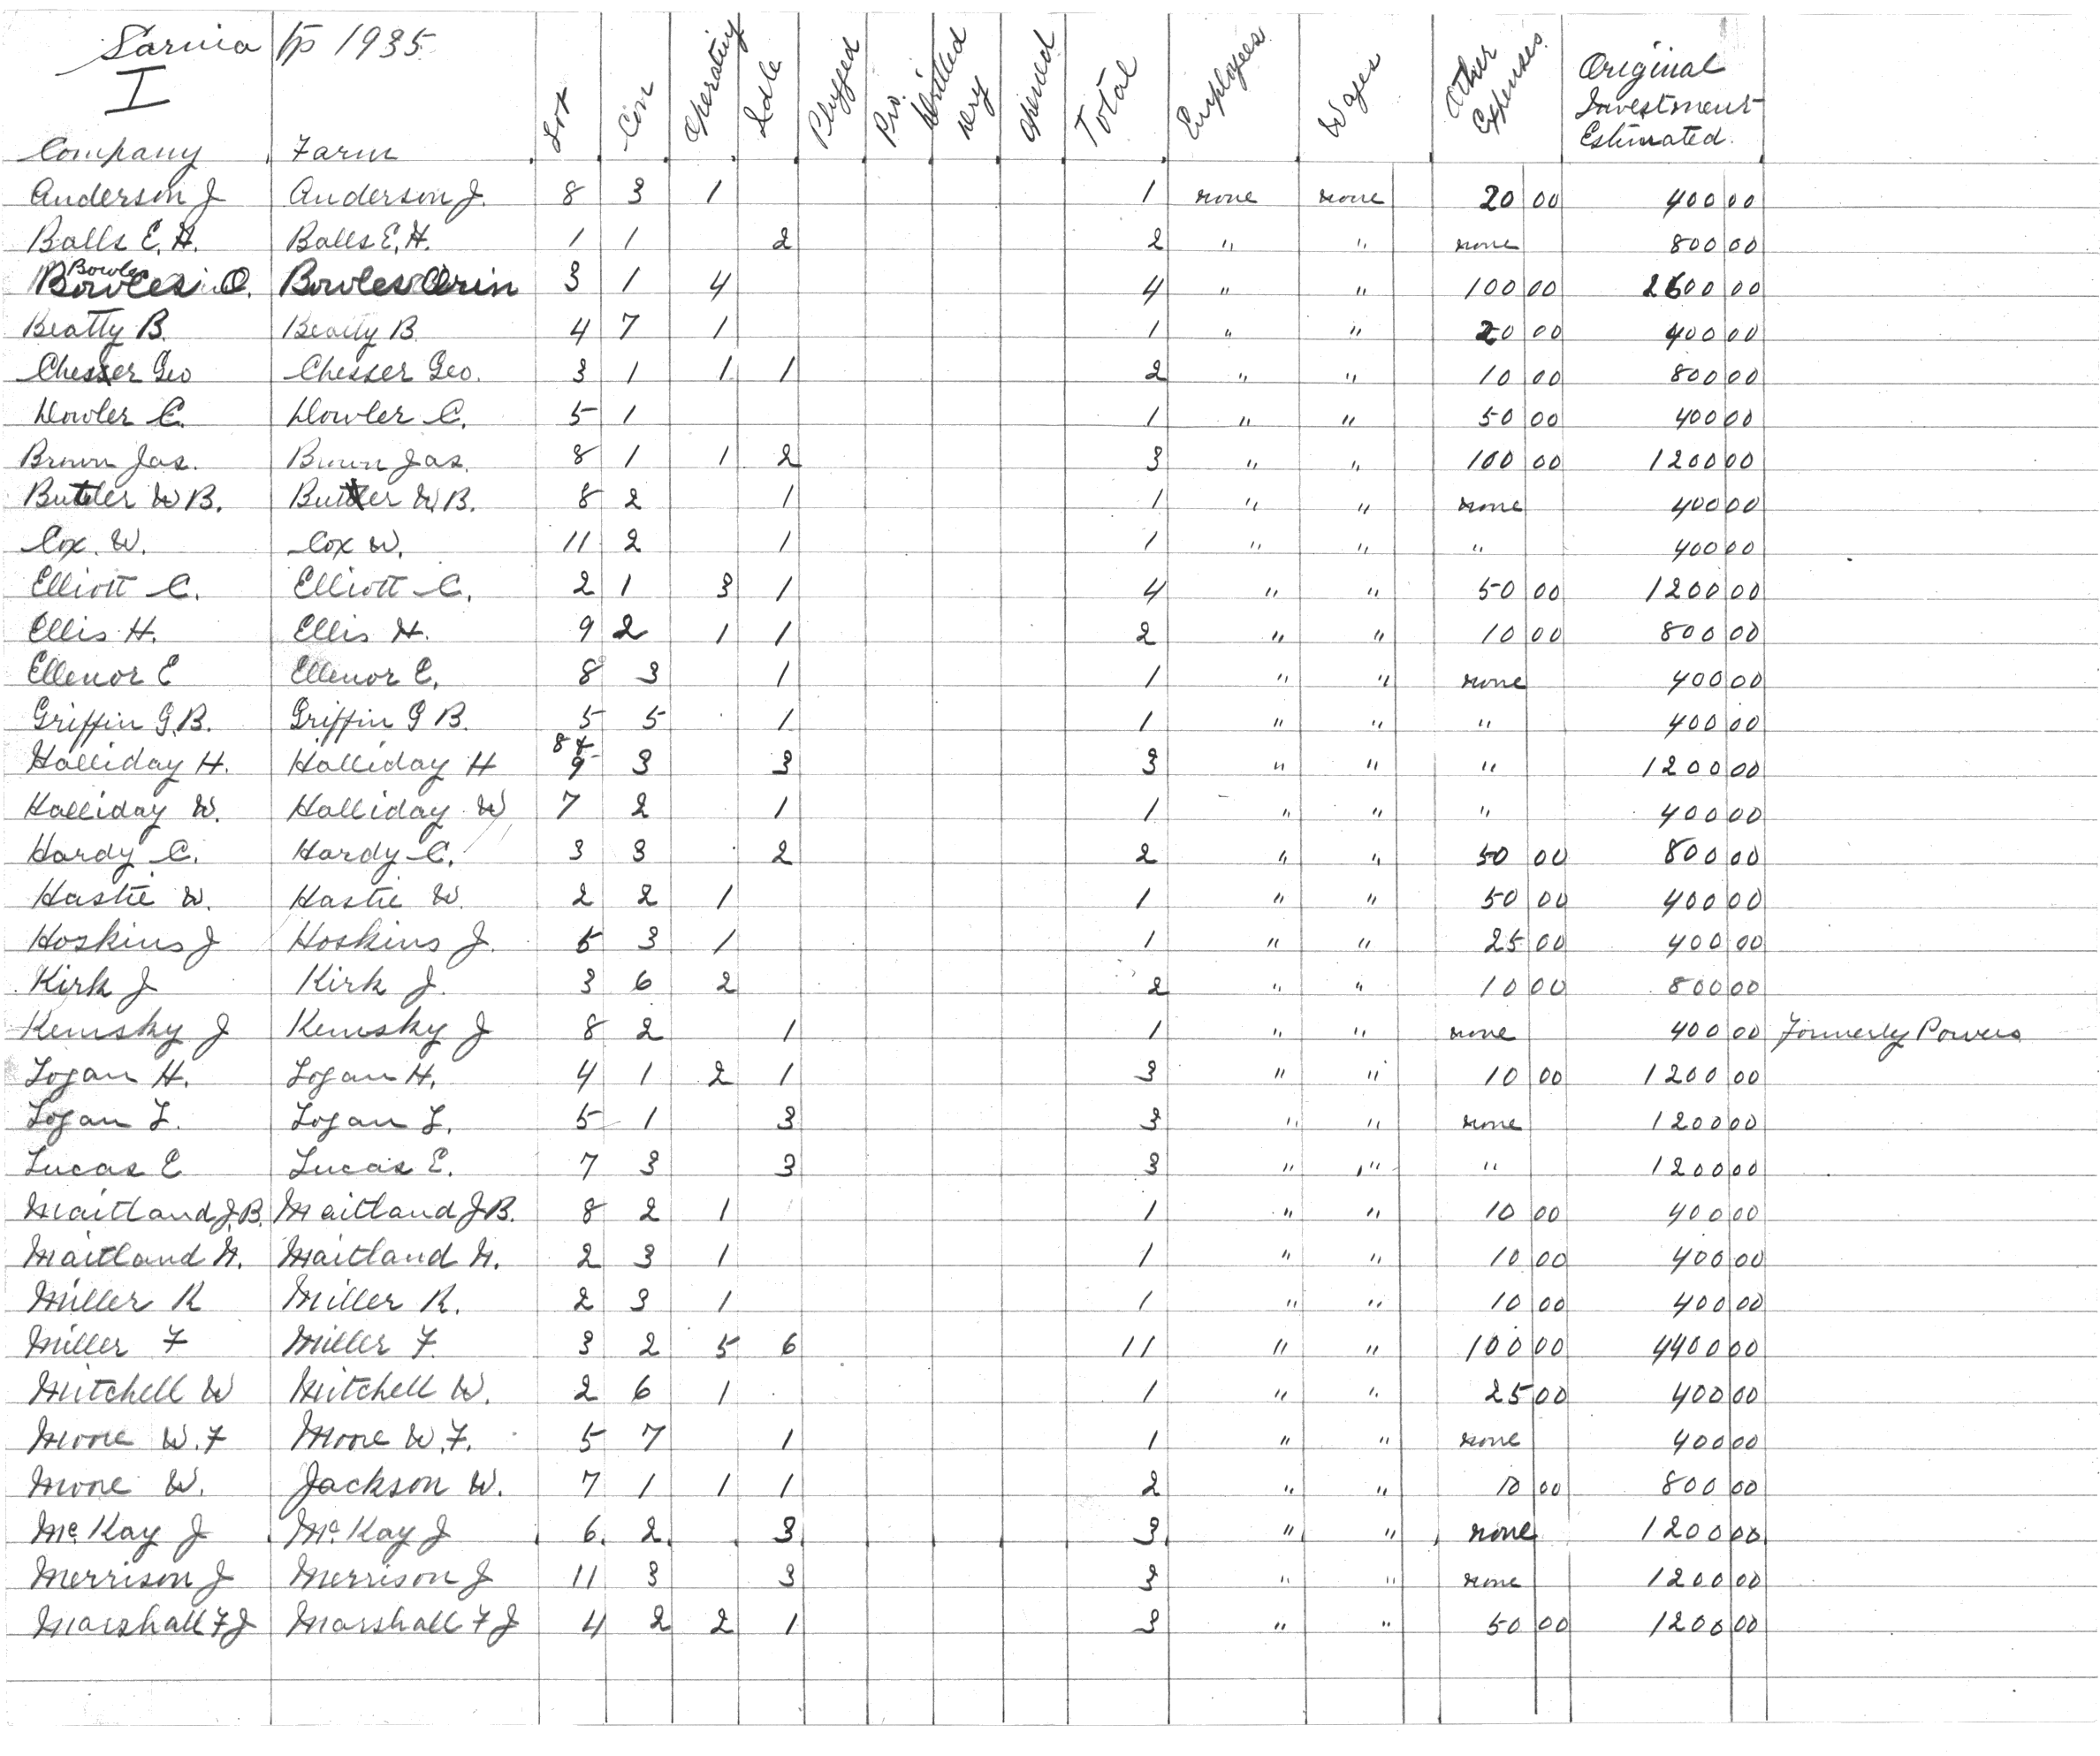 Sarnia Tp 1935
I
Company Farm Lot Con Operating Idle Plugged Pro. Drilled Dry Total Employees Wages Other Expenses Original Investment Estimated.
Anderson J Anderson J. 8 3 1 1 none none 20 00 400 00
Balls E. H. Balls E. H. 1 1 2 2 " " none 800 00
Bowles O. Bowles Orin 3 1 4 4 " " 100 00 00
Beatty B. Beatty B 4 7 1 1 " " 20 00 400 00
Chesser Geo Chesser Geo. 3 1 1 1 2 " " 10 00 800 00
Dowler C. Dowler C. 5 1 1 " " 50 00 400 00
Brown Jas. Brown Jas. 8 1 1 2 3 " " 100 00 1200 00
Butler W B. Butler W B. 8 2 1 1 " " none 400 00
Cox. W. Cox W. 11 2 1 1 " " " 400 00
Elliott C. Elliott C. 2 1 3 1 4 " " 50 00 1200 00
Ellis H. Ellis H. 9 2 1 1 2 " " 10 00 800 00
Ellenor E Ellenor E. 8 3 1 1 " " none 400 00
Griffin G. B. Griffin G B. 5 5 1 1 " " " 400 00
Halliday H. Halliday H 8 & 9 3 3 3 " " " 1200 00
Halliday W. Halliday W 7 2 1 1 " " " 400 00
Hardy C. Hardy C. 3 3 2 2 " " 50 00 800 00
Hastie W. Hastie W. 2 2 1 1 " " 50 00 400 00
Hoskins J Hoskins J. 5 3 1 1 " " 25 00 400 00
Kirk J Kirk J. 3 6 2 2 " " 10 00 800 00
Kemsky J Kemsky J 8 2 1 1 " " none 400 00 Formerly Powers
Logan H. Logan H. 4 1 2 1 3 " " 10 00 1200 00
Logan L. Logan L. 5 1 3 3 " " none 1200 00
Lucas E Lucas E. 7 3 3 3 " " " 1200 00
Maitland J. B. Maitland J B. 8 2 1 1 " " 10 00 400 00
Maitland N. Maitland N. 2 3 1 1 " " 10 00 400 00
Miller R Miller R. 2 3 1 1 " " 10 00 400 00
Miller F Miller F. 3 2 5 6 11 " " 100 00 4400 00
Mitchell W Mitchell W. 2 6 1 1 " " 25 00 400 00
Moore W. F Moore W. F. 5 7 1 1 " " none 400 00
Moore W. Jackson W. 7 1 1 1 2 " " 10 00 800 00
McKay J McKay J 6 2 3 3 " " none 1200 00
Merrison J Merrison J 11 3 3 3 " " none 1200 00
Marshall F J Marshall F J 4 2 2 1 3 " " 50 00 1200 00